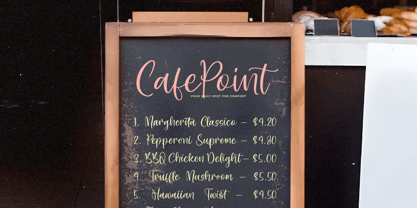 CafePoint
YOUR DAILY SPOT FOR COMFORT
1. Margherita Classico - $4.20
2. Pepperoni Supreme - $4.80
3. BBQ Chicken Delight - $5.00
4. Truffle Mushroom - $5.50
5. Hawaiian Twist - $4.50